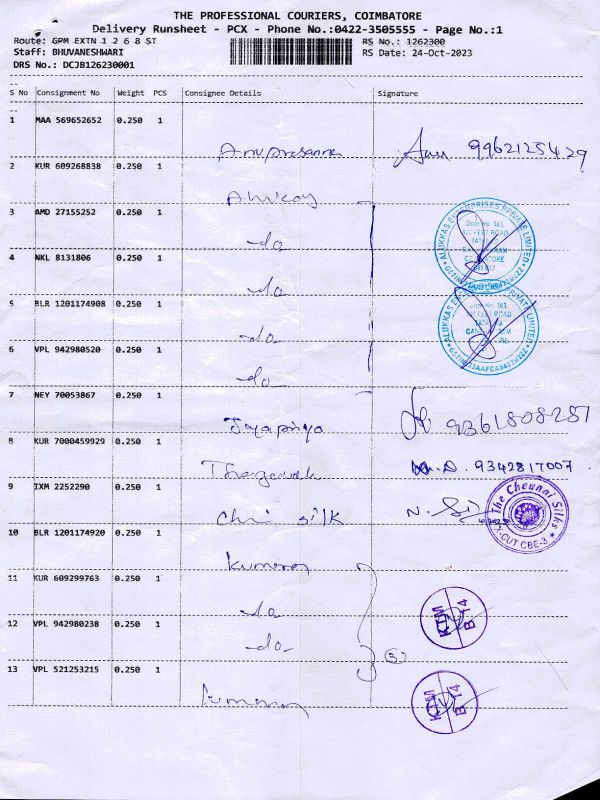 THE PROFESSIONAL COURIERS, COIMBATORE
Delivery Runsheet - PCX - Phone No.:0422-3505555 - Page No.:1
Route: GPM EXTN 1 2 6 8 ST
RS No.: 1262300
Staff: BHUVANESHWARI
RS Date: 24-Oct-2023
DRS No.: DCJB126230001
S No Consignment No Weight PCS Consignee Details Signature
1 MAA 569652652 0.250 1
Anuprasanna 9962125429
2 KUR 609268838 0.250 1
3 AMD 27155252 0.250 1
do
4 NKL 8131806 0.250 1
do
5 BLR 1201174908 0.250 1
do
6 VPL 942980520 0.250 1
do
ALUKKAS ENTERPRISES PRIVATE LIMITED
Door No: 383,
100 FEET ROAD
7 NEY 70053867 0.250 1
9361808287
8 KUR 7000459929 0.250 1
9342817007
9 IXM 2252290 0.250 1
silk
The Chennai Silks
CUT CBE-3
10 BLR 1201174920 0.250 1
Kumaran
11 KUR 609299763 0.250 1
do
12 VPL 942980238 0.250 1
do
KTM
B 14
13 VPL 521253215 0.250 1
Kumaran
KTM
B 14